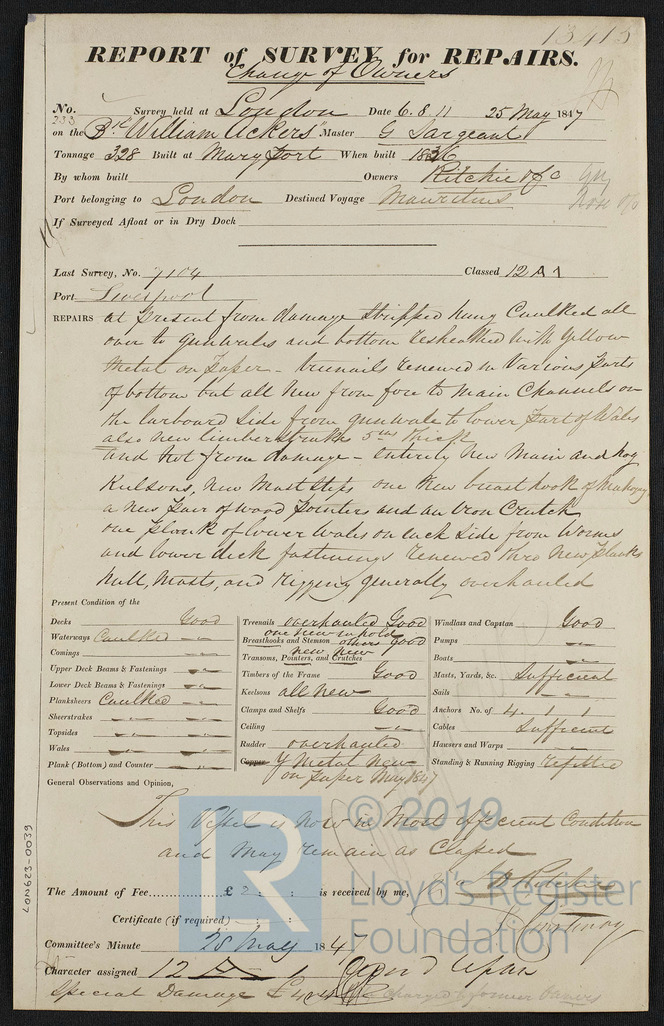 13415
REPORT of SURVEY for REPAIRS.
Change of Owners
No. 233 Survey held at London Date 6. 8. 11 25 May 1847
on the Bk "William Ackers" Master G Sargeant
Tonnage 328 Built at Mary Port When built 1836
By whom built Owners Ritchie & Co
Port belonging to London Destined Voyage Mauritius
If Surveyed Afloat or in Dry Dock
Last Survey, No. 7104 Classed 12 A 1
Port Liverpool
REPAIRS at Present from damage Stripped hung Caulked all
over to gunwales and bottom resheathed with yellow
Metal on Paper - treenails renewed in Various parts
of bottom but all New from fore to Main Channels on
the larboard Side from gunwale to lower part of Wales
also new limberstrake 5 ins thick
and not from damage - entirely New Main and
Kelsons, New Mast Steps one New breasthook of Mahogy
a New pair of wood Pointers and an Iron Crutch
one plank of lower Wales on each Side from Worms
and lower deck fastenings renewed thro New planks
Hull, Masts, and rigging generally overhauled
Present Condition of the
Decks Good
Waterways Caulked
Comings
Upper Deck Beams & Fastenings
Lower Deck Beams & Fastenings
Planksheers Caulked
Sheerstrakes
Topsides
Wales
Plank (Bottom) and Counter
Treenails overhauled Good
one New in hold
Breasthooks and Stemson others good
new new
Transoms, Pointers, and Crutches
Timbers of the Frame Good
Keelsons all new
Clamps and Shelfs Good
Ceiling
Rudder overhauled
Copper Y Metal New
on Paper May 1847
Windlass and Capstan Good
Pumps
Boats
Masts, Yards, &c. Sufficient
Sails
Anchors No. of 4. 1 1
Cables Sufficient
Hawsers and Warps
Standing & Running Rigging refitted
General Observations and Opinion,
This Vessel is now in Most efficient Condition
and May remain as Classed
© 2019
Lloyd's Register
Foundation
LR
The Amount of Fee £ 2 : : is received by me,
Certificate (if required) : :
Committee's Minute 28 May 1847
Character assigned 12 A 1
Special Damage £ charged to former Owners
LON623-0039